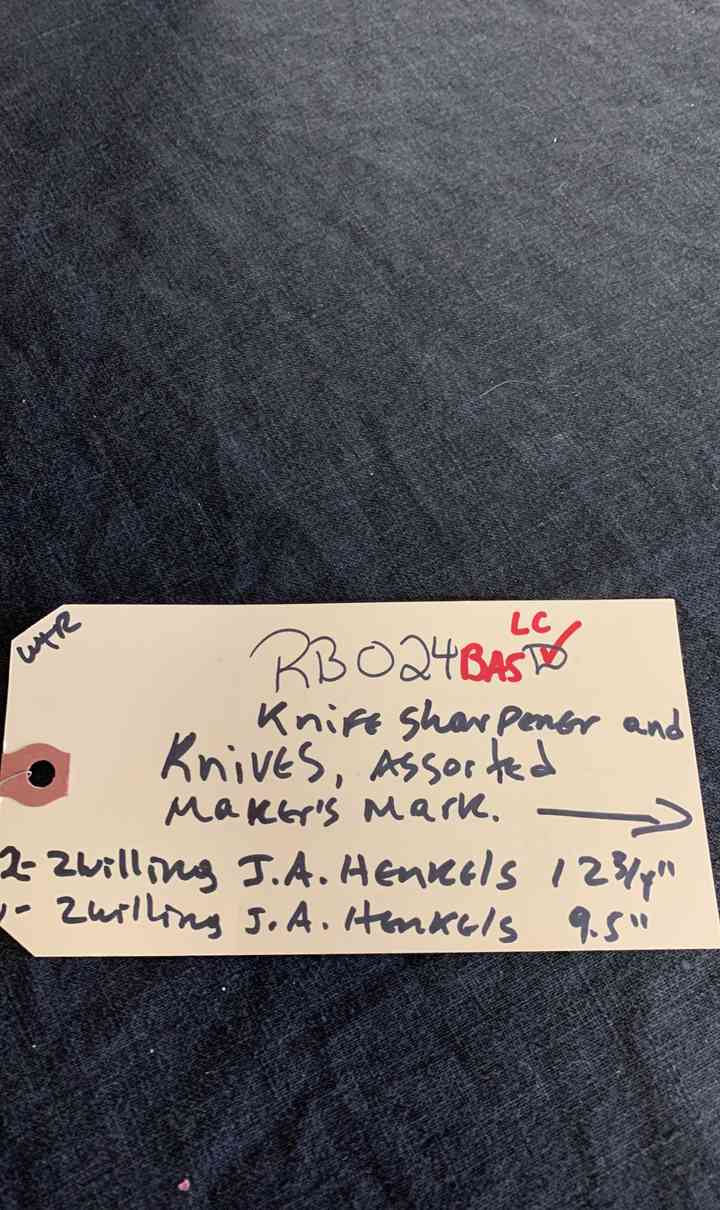 WTR
LC
RB024 BAS D ✓
Knife Sharpener and
Knives, Assorted
Maker's Mark. →
2- Zwilling J.A. Henkels 12 3/4"
1- Zwilling J.A. Henkels 9.5"